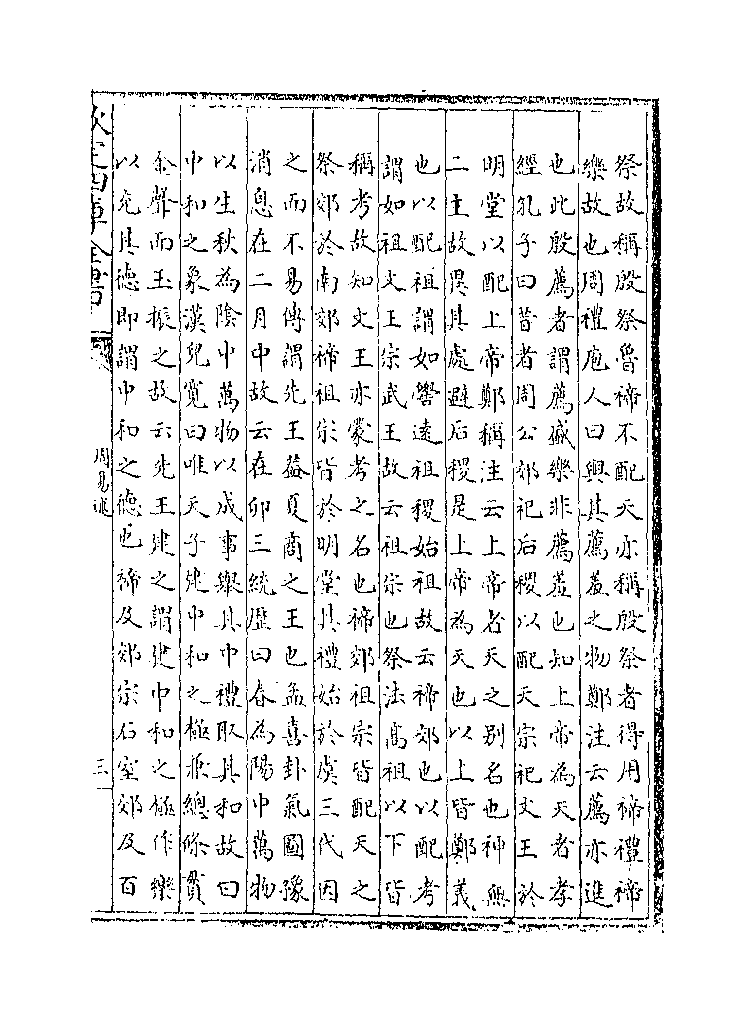 祭故稱殷祭魯禘不配天亦稱殷祭者得用禘禮禘
樂故也周禮庖人曰與其薦羞之物鄭注云薦亦進
也此殷薦者謂薦盛樂非薦羞也知上帝為天者孝
經孔子曰昔者周公郊祀后稷以配天宗祀文王於
明堂以配上帝鄭稱注云上帝者天之别名也神無
二主故異其處避后稷是上帝為天也以上皆鄭義
也以配祖謂如嚳逺祖稷始祖故云禘郊也以配考
謂如祖文王宗武王故云祖宗也祭法髙祖以下皆
稱考故知文王亦蒙考之名也禘郊祖宗皆配天之
祭郊於南郊禘祖宗皆於明堂其禮始於虞三代因
之而不易傳謂先王蓋夏商之王也孟喜卦氣圖豫
消息在二月中故云在卯三統厯曰春為陽中萬物
以生秋為隂中萬物以成事舉其中禮取其和故曰
中和之象漢兒寛曰唯天子建中和之極兼總條貫
金聲而玉振之故云先王建之謂建中和之極作樂
以充其德即謂中和之德也禘及郊宗石室郊及百
欽定四庫全書
周易述
三